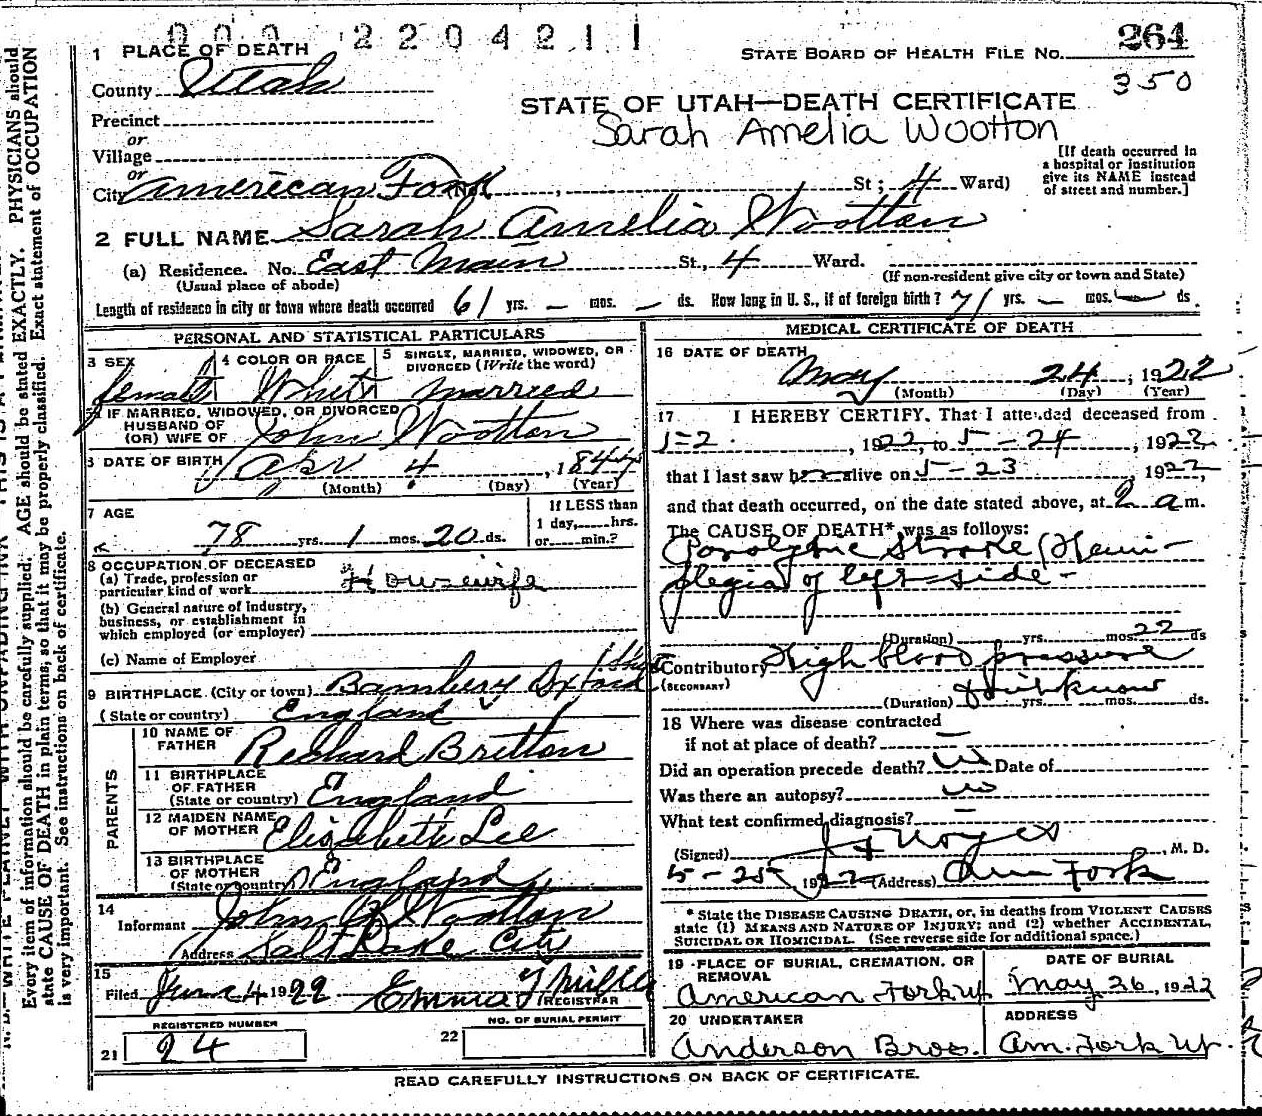 000 2204211
1 PLACE OF DEATH
STATE BOARD OF HEALTH FILE No. 264
County Utah
350
STATE OF UTAH—DEATH CERTIFICATE
Precinct
Sarah Amelia Wootton
or
Village
or
City American Fork (No. , St; 4 Ward)
[If death occurred in
a hospital or institution
give its NAME instead
of street and number.]
2 FULL NAME Sarah Amelia Wootton
(a) Residence. No. East Main St., 4 Ward.
(Usual place of abode)
(If non-resident give city or town and State)
Length of residence in city or town where death occurred 61 yrs. — mos. — ds. How long in U. S., if of foreign birth? 71 yrs. — mos. — ds.
PERSONAL AND STATISTICAL PARTICULARS
3 SEX
female
4 COLOR OR RACE
White
5 SINGLE, MARRIED, WIDOWED, OR
DIVORCED (Write the word)
married
IF MARRIED, WIDOWED, OR DIVORCED
HUSBAND OF
(OR) WIFE OF John Wootton
DATE OF BIRTH Apr 4, 1844
(Month) (Day) (Year)
7 AGE
78 yrs. 1 mos. 20 ds.
If LESS than
1 day, hrs.
or min.?
8 OCCUPATION OF DECEASED
(a) Trade, profession or
particular kind of work Housewife
(b) General nature of Industry,
business, or establishment in
which employed (or employer)
(c) Name of Employer
9 BIRTHPLACE (City or town) Bamsbery Oxford
(State or country) England
PARENTS
10 NAME OF
FATHER Richard Britton
11 BIRTHPLACE
OF FATHER
(State or country) England
12 MAIDEN NAME
OF MOTHER Elizabeth Lee
13 BIRTHPLACE
OF MOTHER
(State or country) England
14
Informant John Wootton
Address Salt Lake City
15
Filed June 4 1922 Emma Miller
REGISTRAR
REGISTERED NUMBER
21 24
NO. OF BURIAL PERMIT
22
MEDICAL CERTIFICATE OF DEATH
16 DATE OF DEATH
May 24, 1922
(Month) (Day) (Year)
17 I HEREBY CERTIFY, That I attended deceased from
5-2, 1922, to 5-24, 1922,
that I last saw her alive on 5-23, 1922,
and that death occurred, on the date stated above, at 2 a m.
The CAUSE OF DEATH* was as follows:
Paralytic Stroke (Hemi-
plegia of left side-
(Duration) yrs. mos. 22 ds
Contributory High blood pressure
(SECONDARY)
(Duration) don't know yrs. mos. ds.
18 Where was disease contracted
if not at place of death? —
Did an operation precede death? no Date of
Was there an autopsy? no
What test confirmed diagnosis? —
(Signed) Noyes, M. D.
5-25, 1922 (Address) Am Fork
* State the DISEASE CAUSING DEATH, or, in deaths from VIOLENT CAUSES
state (1) MEANS AND NATURE OF INJURY; and (2) whether ACCIDENTAL,
SUICIDAL OR HOMICIDAL. (See reverse side for additional space.)
19 PLACE OF BURIAL, CREMATION, OR
REMOVAL
American Fork Ut
DATE OF BURIAL
May 26, 1922
20 UNDERTAKER
Anderson Bros.
ADDRESS
Am. Fork Ut.
READ CAREFULLY INSTRUCTIONS ON BACK OF CERTIFICATE.
Every item of information should be carefully supplied; AGE should be stated EXACTLY. PHYSICIANS should
state CAUSE OF DEATH in plain terms, so that it may be properly classified. Exact statement of OCCUPATION
is very important. See instructions on back of certificate.